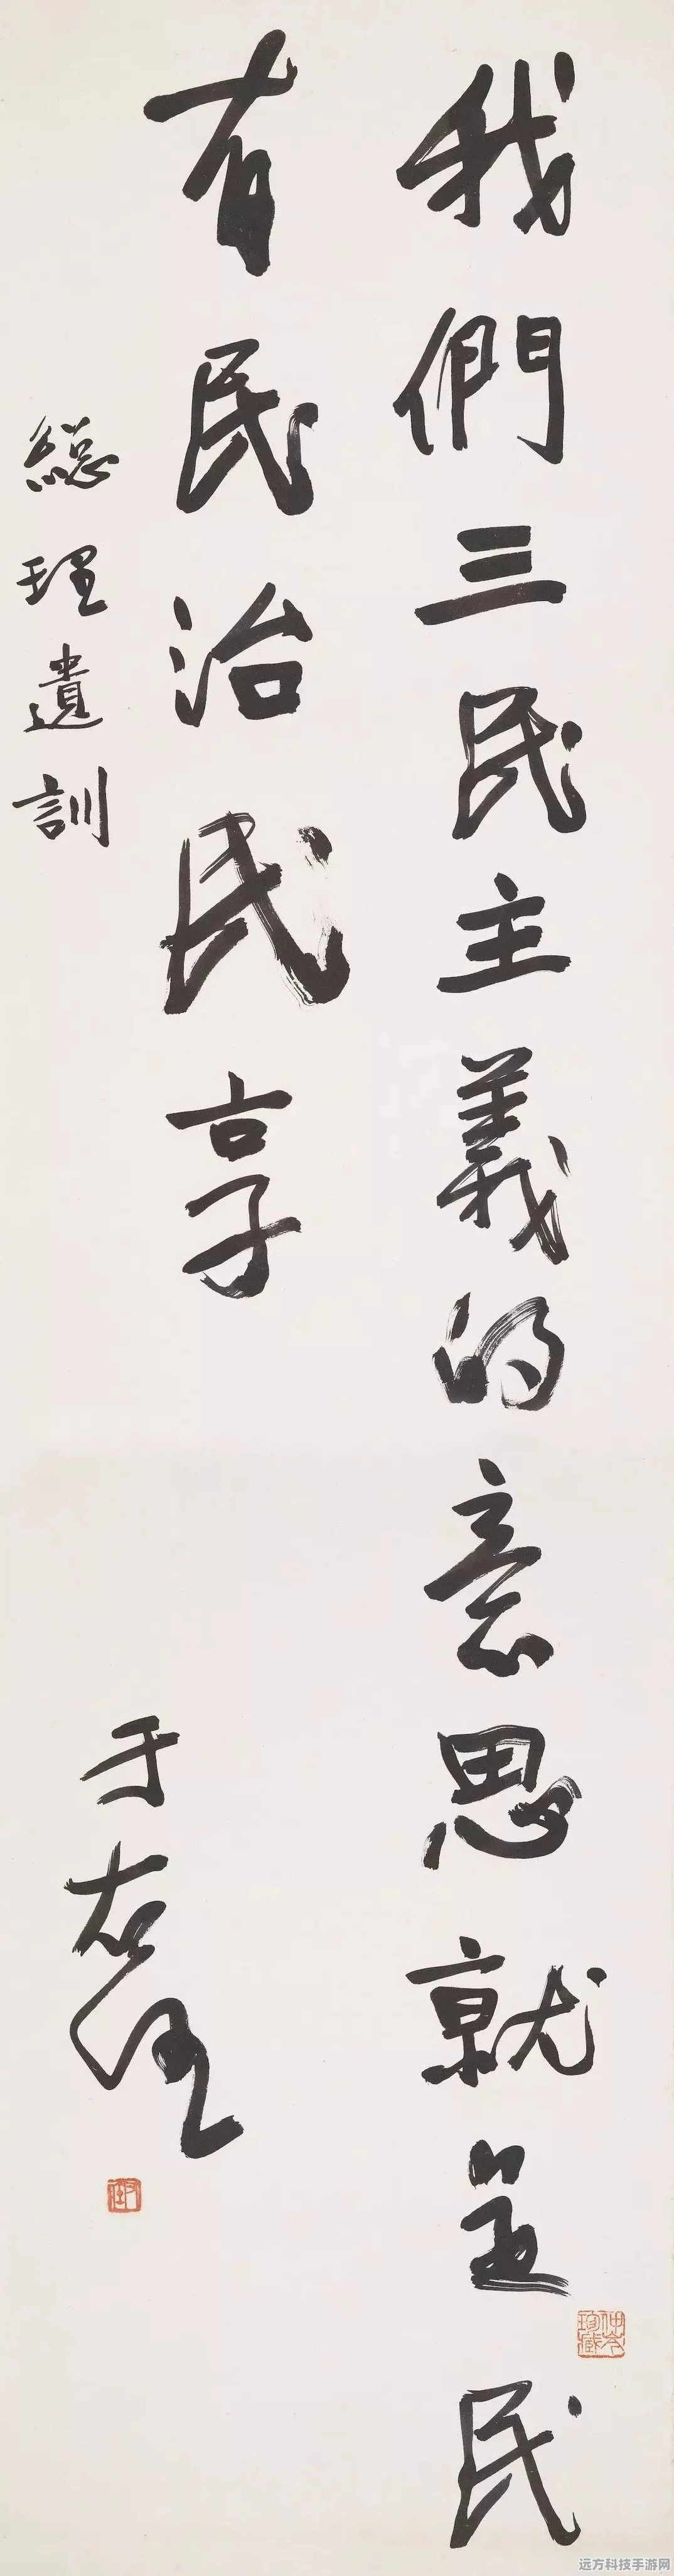 我們三民主義的意思就是民
有民治民享
總理遺訓
于右任
右任
仲岑珣藏
远方科技手游网